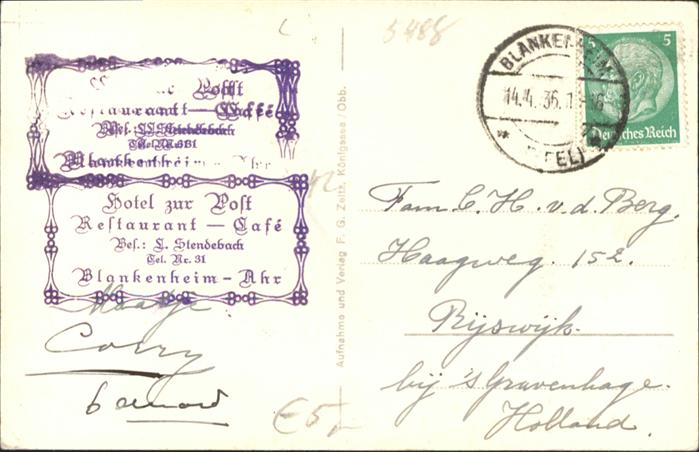 5488
Hotel zur Post
Restaurant — Café
Bes.: L. Stendebach
Tel. Nr. 31
Blankenheim - Ahr
Hotel zur Post
Restaurant — Café
Bes.: L. Stendebach
Tel. Nr. 31
Blankenheim - Ahr
Corry
bernard
€5,-
Aufnahme und Verlag F. G. Zeitz, Königsee / Obb.
BLANKENHEIM
14.4.36.
(EIFEL)
5
5
Deutsches Reich
Fam. C. H. v. d. Berg.
Haagweg. 152.
Rijswijk.
bij 's Gravenhage.
Holland.